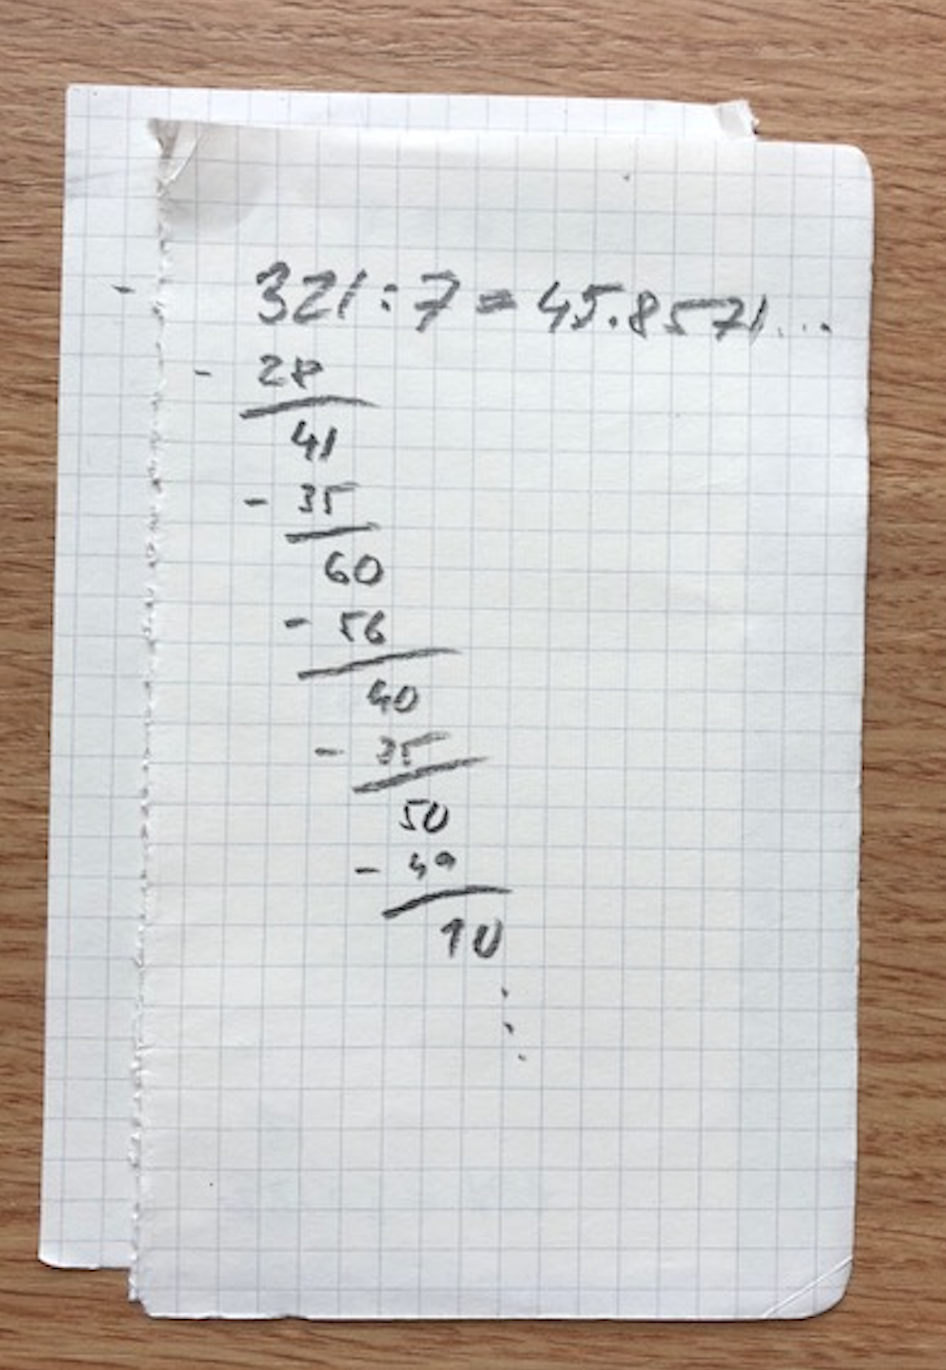 321:7=45.8571...
- 28
41
- 35
60
- 56
40
- 35
50
- 49
10
...